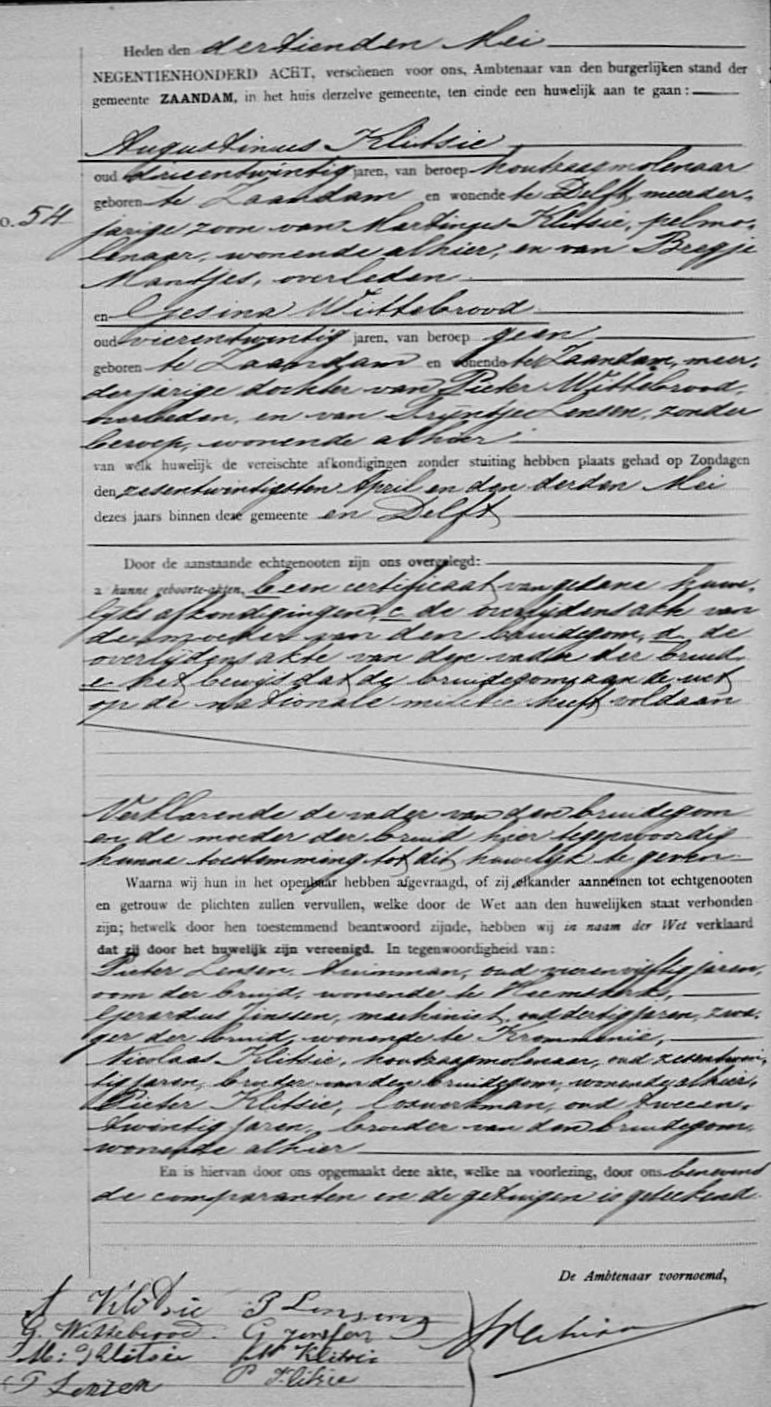 Heden den dertienden Mei
NEGENTIENHONDERD ACHT, verschenen voor ons, Ambtenaar van den burgerlijken stand der
gemeente ZAANDAM, in het huis derzelve gemeente, ten einde een huwelijk aan te gaan:
Augustinus Klitsie
oud drieentwintig jaren, van beroep houtzaagmolenaar
geboren te Zaandam en wonende te Delft, meerder-
o. 54
jarige zoon van Martinus Klitsie, pelmo-
lenaar, wonende alhier, en van Bregje
Mantjes, overleden
en Gesina Wittebrood
oud vierentwintig jaren, van beroep geen
geboren te Zaandam en wonende te Zaandam, meer-
derjarige dochter van Pieter Wittebrood,
overleden, en van Trijntje Lensen, zonder
beroep, wonende alhier
van welk huwelijk de vereischte afkondigingen zonder stuiting hebben plaats gehad op Zondagen
den zesentwintigsten April en den derden Mei
dezes jaars binnen deze gemeente en Delft
Door de aanstaande echtgenooten zijn ons overgelegd:
a hunne geboorte-akten, b een certificaat van gedane huwe-
lijks afkondigingen, c de overlijdensakte van
de moeder van den bruidegom, d de
overlijdensakte van den vader der bruid,
e het bewijs dat de bruidegom aan de wet
op de nationale militie heeft voldaan
Verklarende de vader van den bruidegom
en de moeder der bruid hier tegenwoordig
hunne toestemming tot dit huwelijk te geven
Waarna wij hun in het openbaar hebben afgevraagd, of zij elkander aannemen tot echtgenooten
en getrouw de plichten zullen vervullen, welke door de Wet aan den huwelijken staat verbonden
zijn; hetwelk door hen toestemmend beantwoord zijnde, hebben wij in naam der Wet verklaard
dat zij door het huwelijk zijn vereenigd. In tegenwoordigheid van:
Pieter Lensen, tuinman, oud vierenvijftig jaren,
oom der bruid, wonende te Heemskerk,
Gerardus Jinssen, machinist, oud dertig jaren, zwa-
ger der bruid, wonende te Krommenie,
Nicolaas Klitsie, houtzaagmolenaar, oud zesentwin-
tig jaren, broeder van den bruidegom, wonende alhier,
Pieter Klitsie, loswerkman, oud tweeen-
twintig jaren, broeder van den bruidegom,
wonende alhier
En is hiervan door ons opgemaakt deze akte, welke na voorlezing, door ons benevens
de comparanten en de getuigen is geteekend
De Ambtenaar voornoemd,
A Klitsie P Lensen
G. Wittebrood G Jinssen
M: Klitsie N Klitsie
T Lenzen P Klitsie